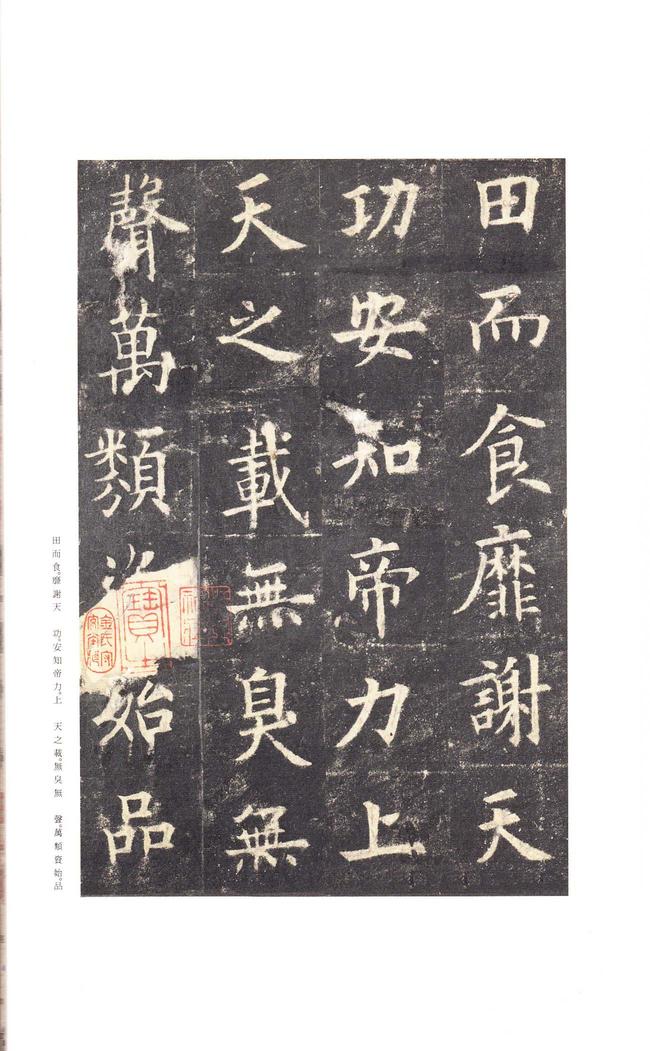 田而食靡謝天
功安知帝力上
天之載無臭無
聲萬類資始品
田而食。靡謝天　功。安知帝力。上　天之載。無臭無　聲。萬類資始。品